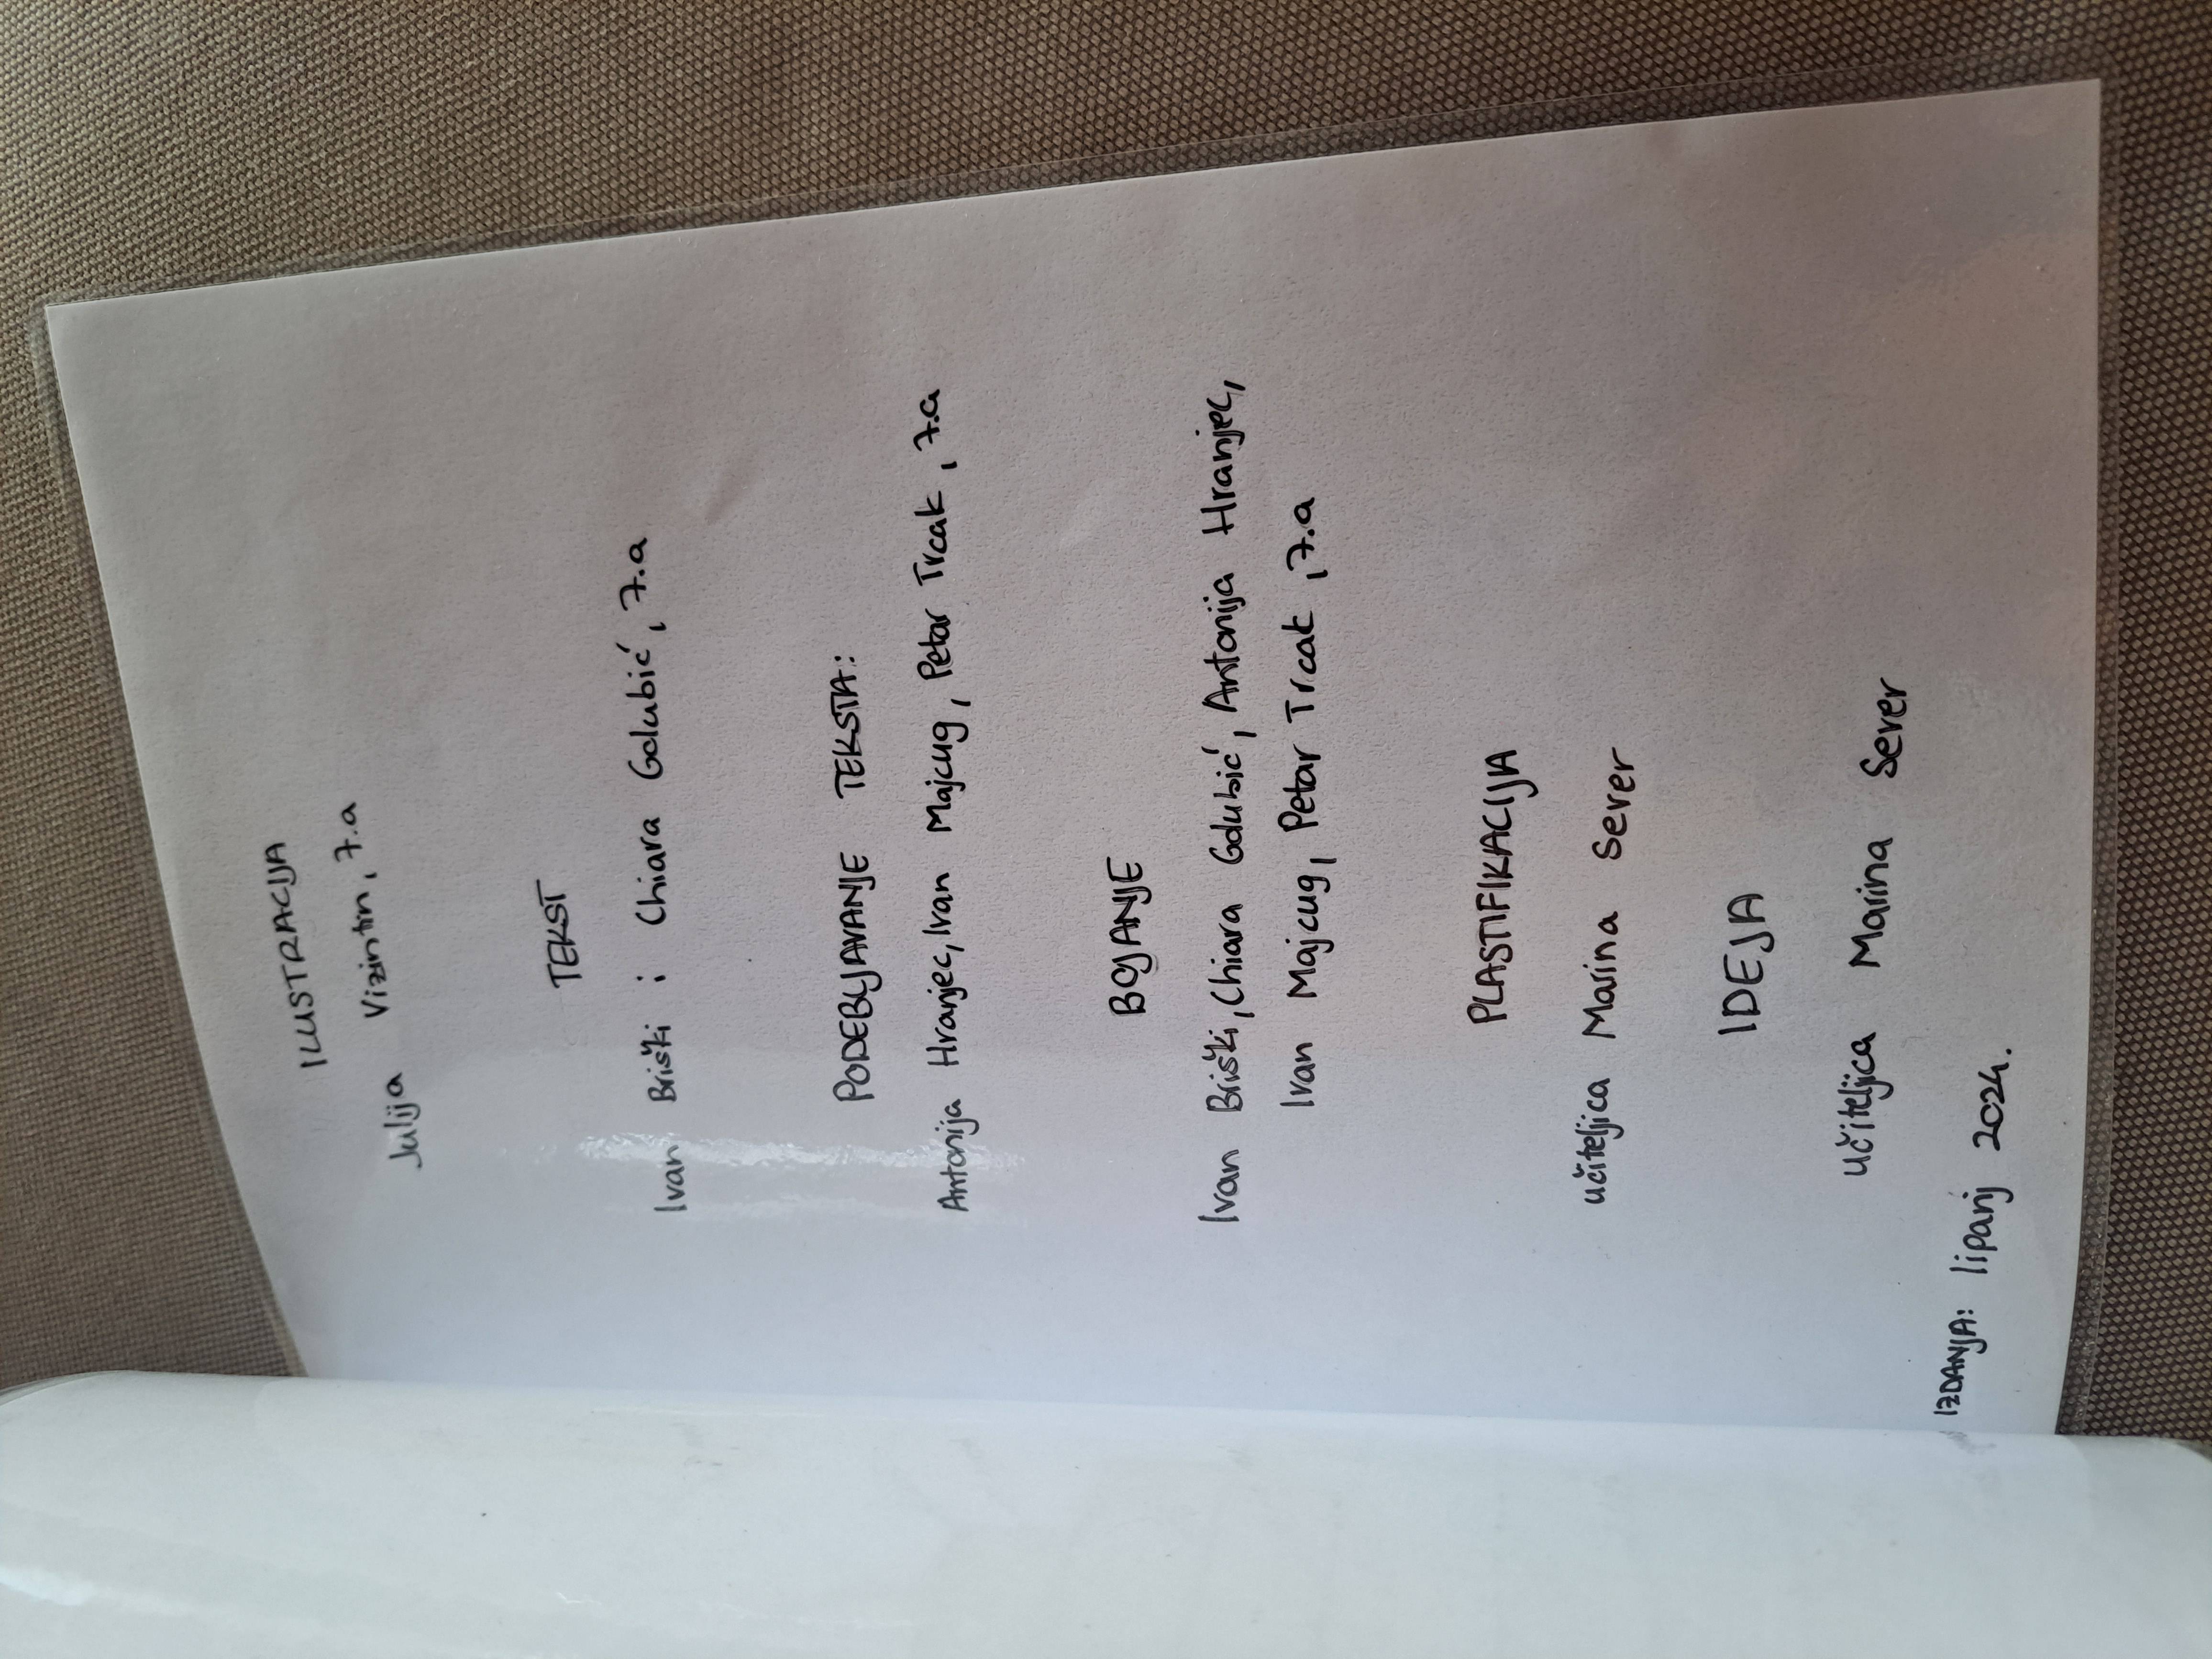 ILUSTRACIJA
Julija Vizintin, 7.a
TEKST
Ivan Briški i Chiara Golubić, 7.a
PODEBLJAVANJE TEKSTA:
Antonija Hranjec, Ivan Majcug, Petar Trcak, 7.a
BOJANJE
Ivan Briški, Chiara Golubić, Antonija Hranjec,
Ivan Majcug, Petar Trcak, 7.a
PLASTIFIKACIJA
učiteljica Marina Sever
IDEJA
učiteljica Marina Sever
IZDANJA: lipanj 2024.